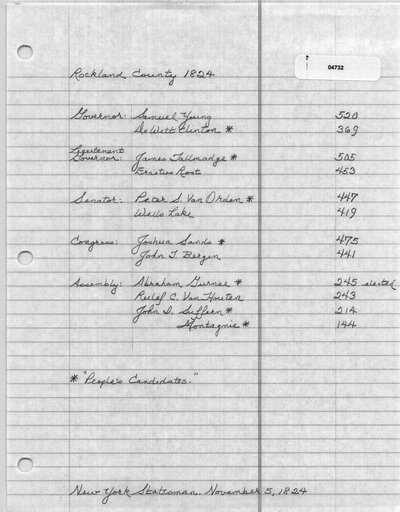 04732
Rockland County 1824
Governor: Samuel Young 520
DeWitt Clinton * 369
Lieutenant
Governor: James Tallmadge * 505
Erastus Root 453
Senator: Peter S. Van Orden * 447
Wells Lake 419
Congress: Joshua Sands * 475
John T. Bergen 441
Assembly: Abraham Gurnee * 245 elected
Roelef C. Van Houten 243
John I. Suffern * 214
Montagnie * 144
* "People's Candidates."
New York Statesman. November 5, 1824